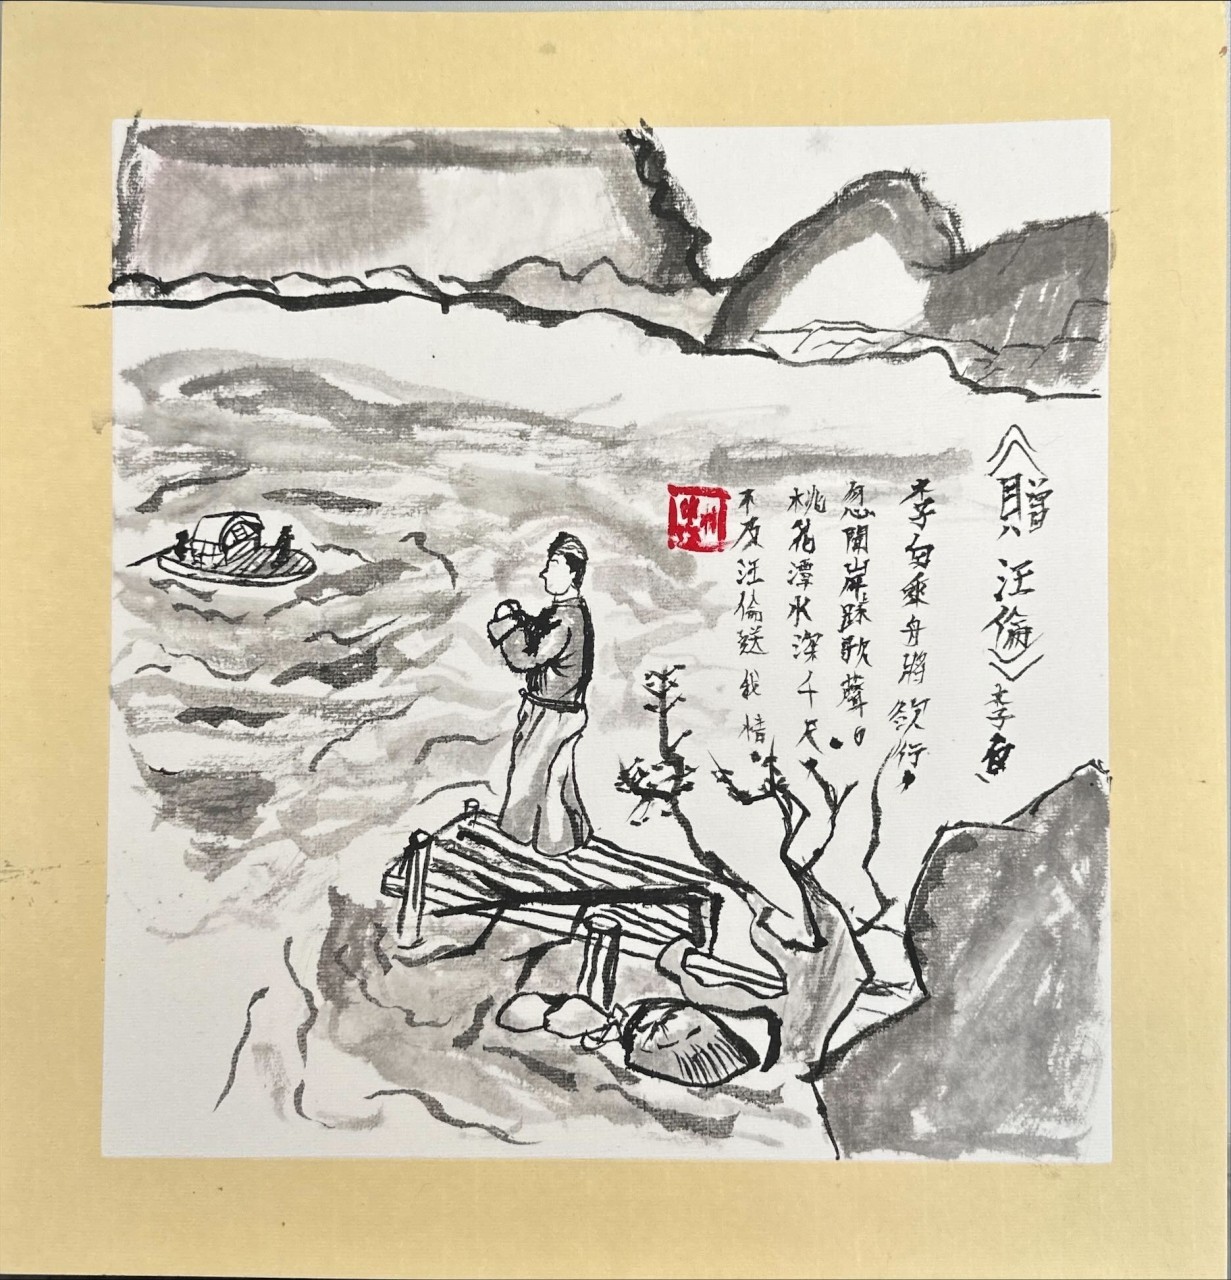 《贈汪倫》李白
李白乘舟將欲行。
忽聞岸上踩歌聲日
桃花潭水深千尺。
不及汪倫送我情。